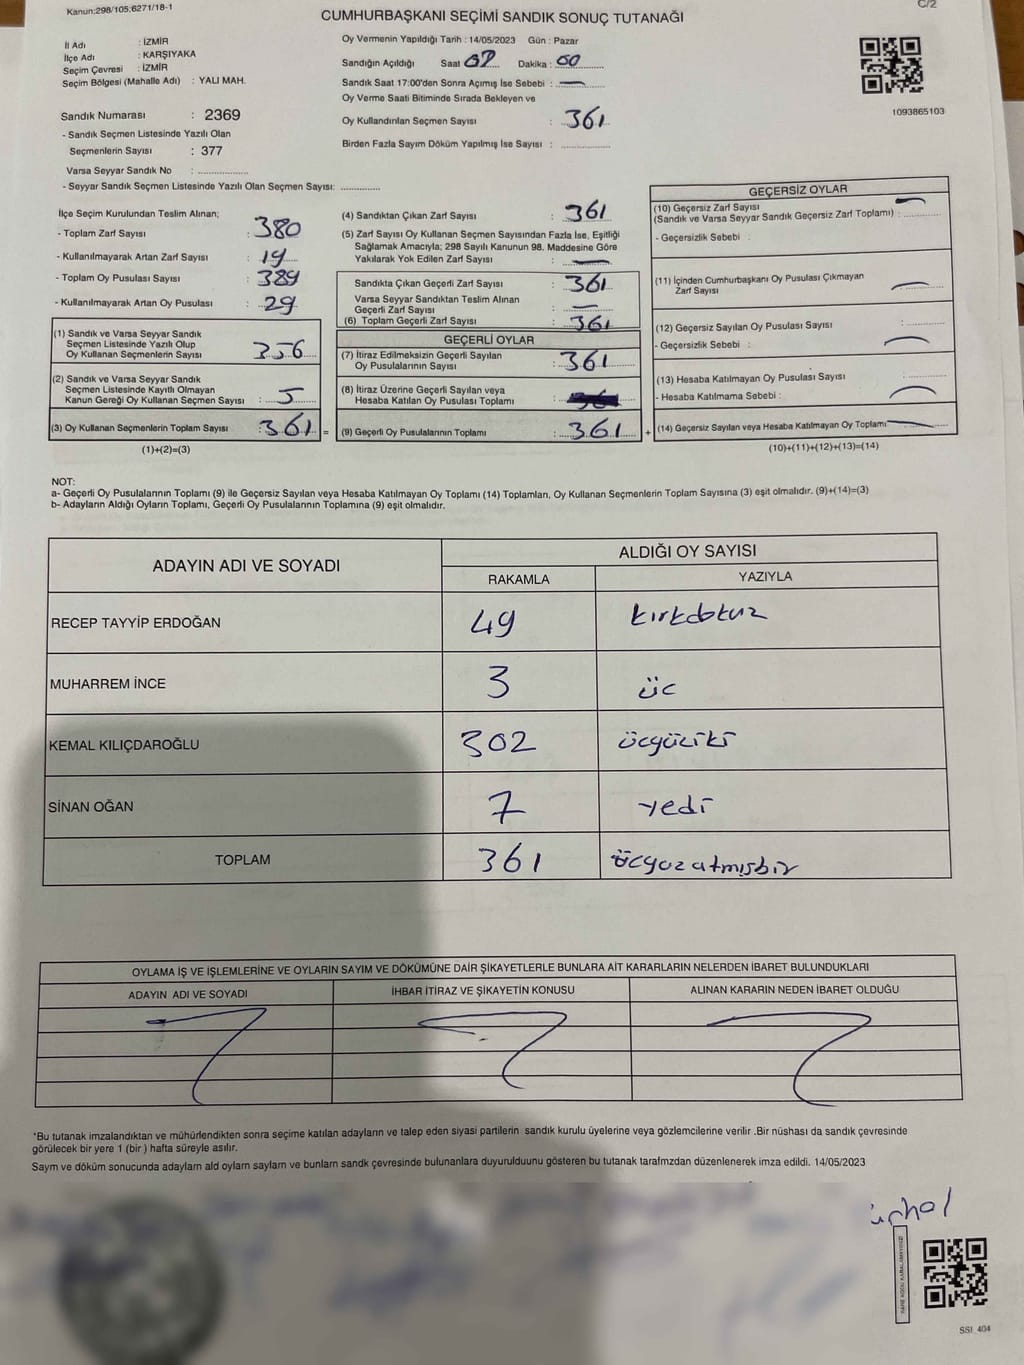 Kanun:298/105,6271/18-1
C/2
CUMHURBAŞKANI SEÇİMİ SANDIK SONUÇ TUTANAĞI
İl Adı : İZMİR
İlçe Adı : KARŞIYAKA
Seçim Çevresi : İZMİR
Seçim Bölgesi (Mahalle Adı) : YALI MAH.
Sandık Numarası : 2369
- Sandık Seçmen Listesinde Yazılı Olan
Seçmenlerin Sayısı : 377
Varsa Seyyar Sandık No : ................
- Seyyar Sandık Seçmen Listesinde Yazılı Olan Seçmen Sayısı: ............
Oy Vermenin Yapıldığı Tarih : 14/05/2023 Gün : Pazar
Sandığın Açıldığı Saat Dakika : 00
Sandık Saat 17:00'den Sonra Açımış İse Sebebi : —
Oy Verme Saati Bitiminde Sırada Bekleyen ve
Oy Kullandırılan Seçmen Sayısı : 361
Birden Fazla Sayım Döküm Yapılmış İse Sayısı : ................
1093865103
İlçe Seçim Kurulundan Teslim Alınan;
- Toplam Zarf Sayısı : 380
- Kullanılmayarak Artan Zarf Sayısı : 19
- Toplam Oy Pusulası Sayısı : 389
- Kullanılmayarak Artan Oy Pusulası : 29
(1) Sandık ve Varsa Seyyar Sandık
Seçmen Listesinde Yazılı Olup
Oy Kullanan Seçmenlerin Sayısı 356
(2) Sandık ve Varsa Seyyar Sandık
Seçmen Listesinde Kayıtlı Olmayan
Kanun Gereği Oy Kullanan Seçmen Sayısı : 5
(3) Oy Kullanan Seçmenlerin Toplam Sayısı : 361 =
(1)+(2)=(3)
(4) Sandıktan Çıkan Zarf Sayısı : 361
(5) Zarf Sayısı Oy Kullanan Seçmen Sayısından Fazla İse, Eşitliği
Sağlamak Amacıyla; 298 Sayılı Kanunun 98. Maddesine Göre
Yakılarak Yok Edilen Zarf Sayısı : —
Sandıkta Çıkan Geçerli Zarf Sayısı : 361
Varsa Seyyar Sandıktan Teslim Alınan
Geçerli Zarf Sayısı : —
(6) Toplam Geçerli Zarf Sayısı : 361
GEÇERLİ OYLAR
(7) İtiraz Edilmeksizin Geçerli Sayılan
Oy Pusulalarının Sayısı : 361
(8) İtiraz Üzerine Geçerli Sayılan veya
Hesaba Katılan Oy Pusulası Toplamı :
(9) Geçerli Oy Pusulalarının Toplamı : 361 +
GEÇERSİZ OYLAR
(10) Geçersiz Zarf Sayısı —
(Sandık ve Varsa Seyyar Sandık Geçersiz Zarf Toplamı) : ............
- Geçersizlik Sebebi :
(11) İçinden Cumhurbaşkanı Oy Pusulası Çıkmayan
Zarf Sayısı : —
(12) Geçersiz Sayılan Oy Pusulası Sayısı : ............
- Geçersizlik Sebebi : —
(13) Hesaba Katılmayan Oy Pusulası Sayısı : ............
- Hesaba Katılmama Sebebi : —
(14) Geçersiz Sayılan veya Hesaba Katılmayan Oy Toplamı —
(10)+(11)+(12)+(13)=(14)
NOT:
a- Geçerli Oy Pusulalarının Toplamı (9) ile Geçersiz Sayılan veya Hesaba Katılmayan Oy Toplamı (14) Toplamları, Oy Kullanan Seçmenlerin Toplam Sayısına (3) eşit olmalıdır. (9)+(14)=(3)
b- Adayların Aldığı Oyların Toplamı, Geçerli Oy Pusulalarının Toplamına (9) eşit olmalıdır.
ADAYIN ADI VE SOYADI ALDIĞI OY SAYISI
RAKAMLA YAZIYLA
RECEP TAYYİP ERDOĞAN 49 kırkdokuz
MUHARREM İNCE 3 üc
KEMAL KILIÇDAROĞLU 302 ücyüziki
SİNAN OĞAN 7 yedi
TOPLAM 361 ücyüzatmışbir
OYLAMA İŞ VE İŞLEMLERİNE VE OYLARIN SAYIM VE DÖKÜMÜNE DAİR ŞİKAYETLERLE BUNLARA AİT KARARLARIN NELERDEN İBARET BULUNDUKLARI
ADAYIN ADI VE SOYADI İHBAR İTİRAZ VE ŞİKAYETİN KONUSU ALINAN KARARIN NEDEN İBARET OLDUĞU
*Bu tutanak imzalandıktan ve mühürlendikten sonra seçime katılan adayların ve talep eden siyasi partilerin sandık kurulu üyelerine veya gözlemcilerine verilir .Bir nüshası da sandık çevresinde
görülecek bir yere 1 (bir ) hafta süreyle asılır.
Saym ve döküm sonucunda adaylarn ald oylarn saylarn ve bunlarn sandk çevresinde bulunanlara duyurulduunu gösteren bu tutanak tarafmzdan düzenlenerek imza edildi. 14/05/2023
SSI_404